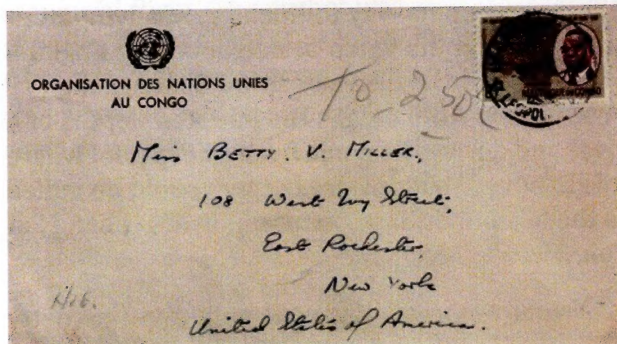 ORGANISATION DES NATIONS UNIES
AU CONGO
Miss BETTY. V. MILLER,
108 West Ivy Street,
East Rochester,
New York
United States of America.